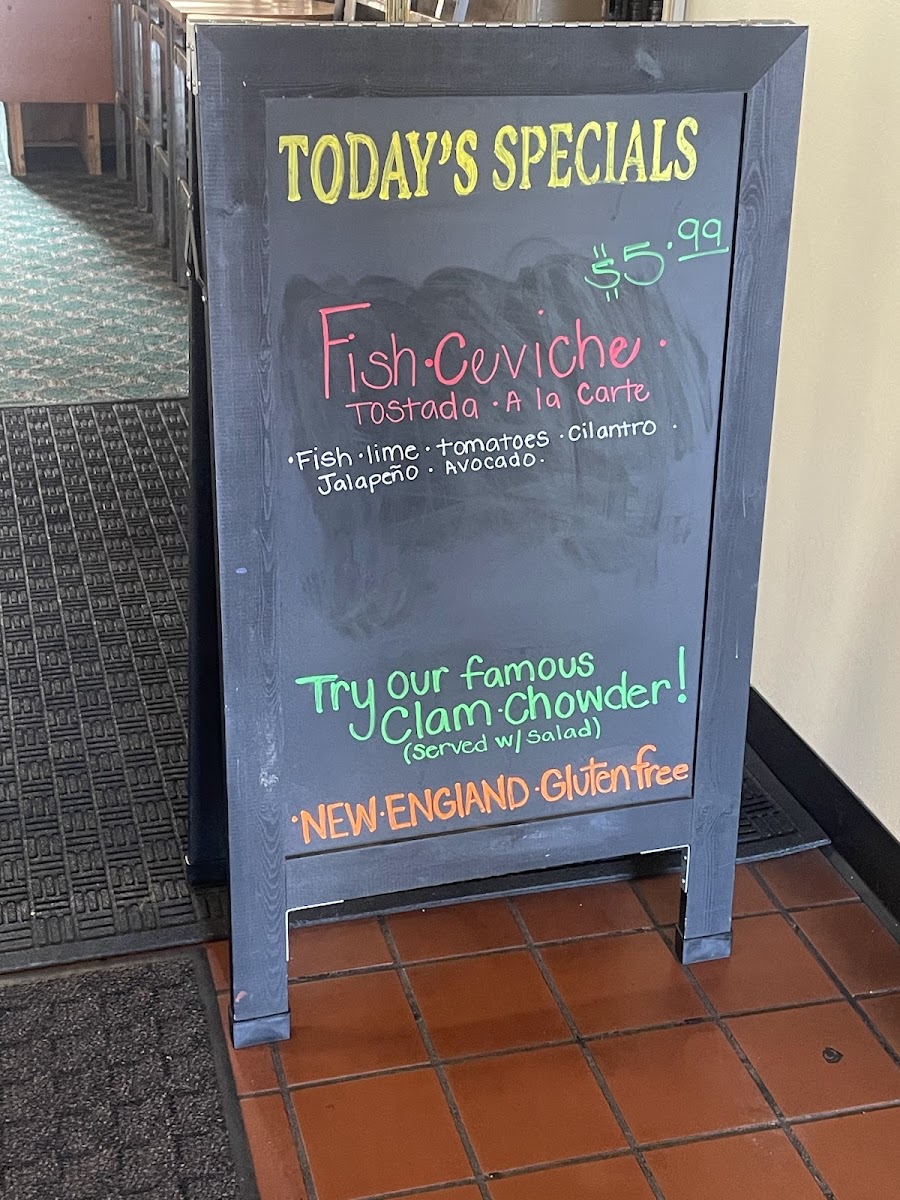 TODAY'S SPECIALS
$5.99
Fish·Ceviche·
Tostada·A la Carte
·Fish·lime·tomatoes·Cilantro·
Jalapeño·Avocado·
Try our famous
Clam·Chowder!
(Served w/Salad)
·NEW·ENGLAND·Gluten free